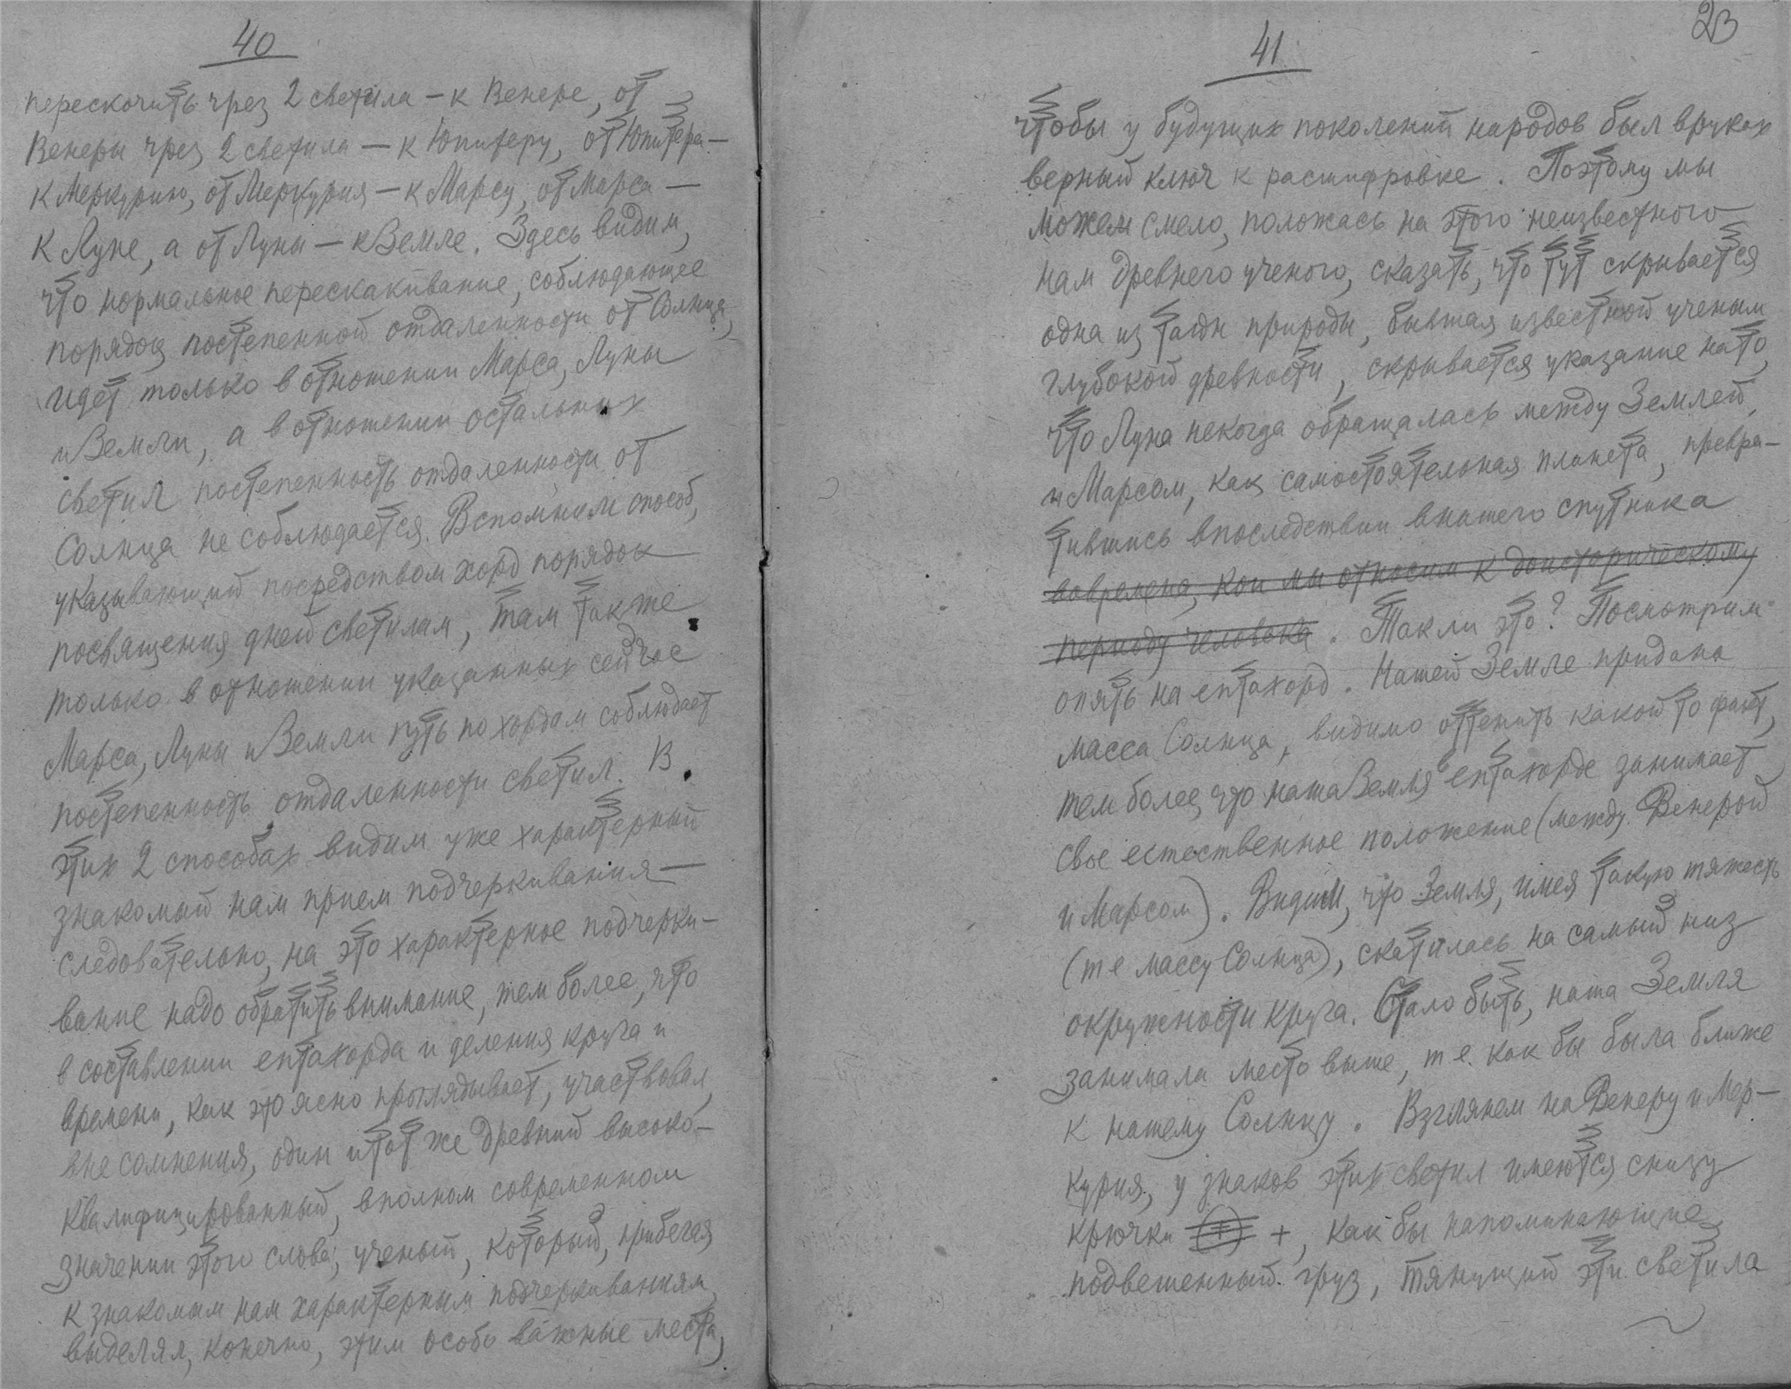 40
перескочить чрез 2 светила – к Венере, от
Венеры чрез 2 светила – к Юпитеру, от Юпитера –
к Меркурию, от Меркурия – к Марсу, от Марса –
к Луне, а от Луны – к Земле. Здесь видим,
что нормальное перескакивание, соблюдающее
порядок постепенной отдаленности от Солнца,
идет только в отношении Марса, Луны
и Земли, а в отношении остальных
светил постепенность отдаленности от
Солнца не соблюдается. Вспомним способ,
указывающий посредством хорд порядок
посвящения дней светилам, там также
только в отношении указанных сейчас
Марса, Луны и Земли путь по хордам соблюдает
постепенность отдаленности светил. В
этих 2 способах видим уже характерный
знакомый нам прием подчеркивания –
следовательно, на это характерное подчерки-
вание надо обратить внимание, тем более, что
в составлении ептахорда и деления круга и
времени, как это ясно проглядывает, участвовал,
вне сомнения, один и тот же древний высоко-
квалифицированный, в полном современном
значении этого слова, ученый, который, прибегая
к знакомым нам характерным подчеркиваниям,
выделял, конечно, этим особо важные места,
41
23
чтобы у будущих поколений народов был в руках
верный ключ к расшифровке. Поэтому мы
можем смело, положась на этого неизвестного
нам древнего ученого, сказать, что тут скрывается
одна из тайн природы, бывшая известной ученым
глубокой древности, скрывается указание на то,
что Луна некогда обращалась между Землей
и Марсом, как самостоятельная планета, превра-
тившись впоследствии в нашего спутника
во времена, кои мы относим к доисторическому
периоду человека. Так ли это? Посмотрим
опять на ептахорд. Нашей Земле придана
масса Солнца, видимо оттенить какой то факт,
тем более, что наша Земля в ептахорде занимает
свое естественное положение (между Венерой
и Марсом). Видим, что Земля, имея такую тяжесть
(т е массу Солнца), скатилась на самый низ
окружности круга. Стало быть, наша Земля
занимала место выше, т е. как бы была ближе
к нашему Солнцу. Взглянем на Венеру и Мер-
курия, у знаков этих светил имеются снизу
крючки +, как бы напоминающие
подвешенный груз, тянущий эти светила